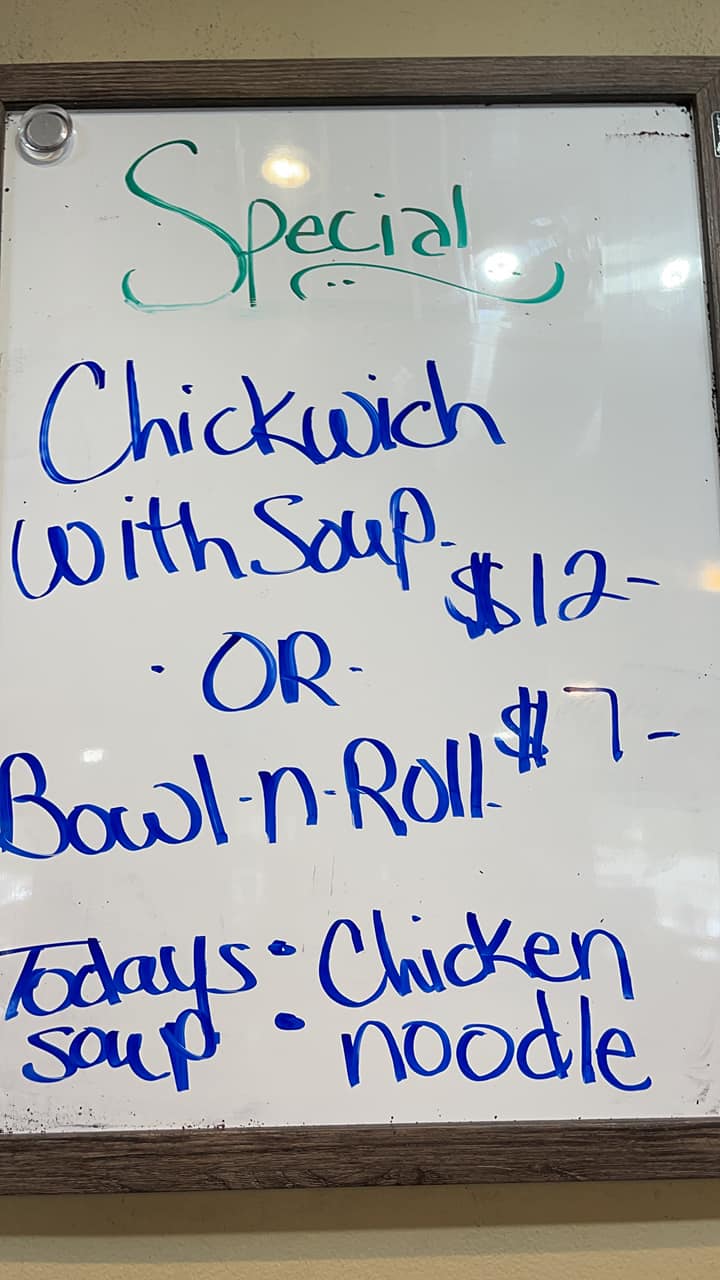 Special
Chickwich
with Soup. $12-
· OR ·
Bowl·n·Roll. $7-
Todays : Chicken
soup noodle